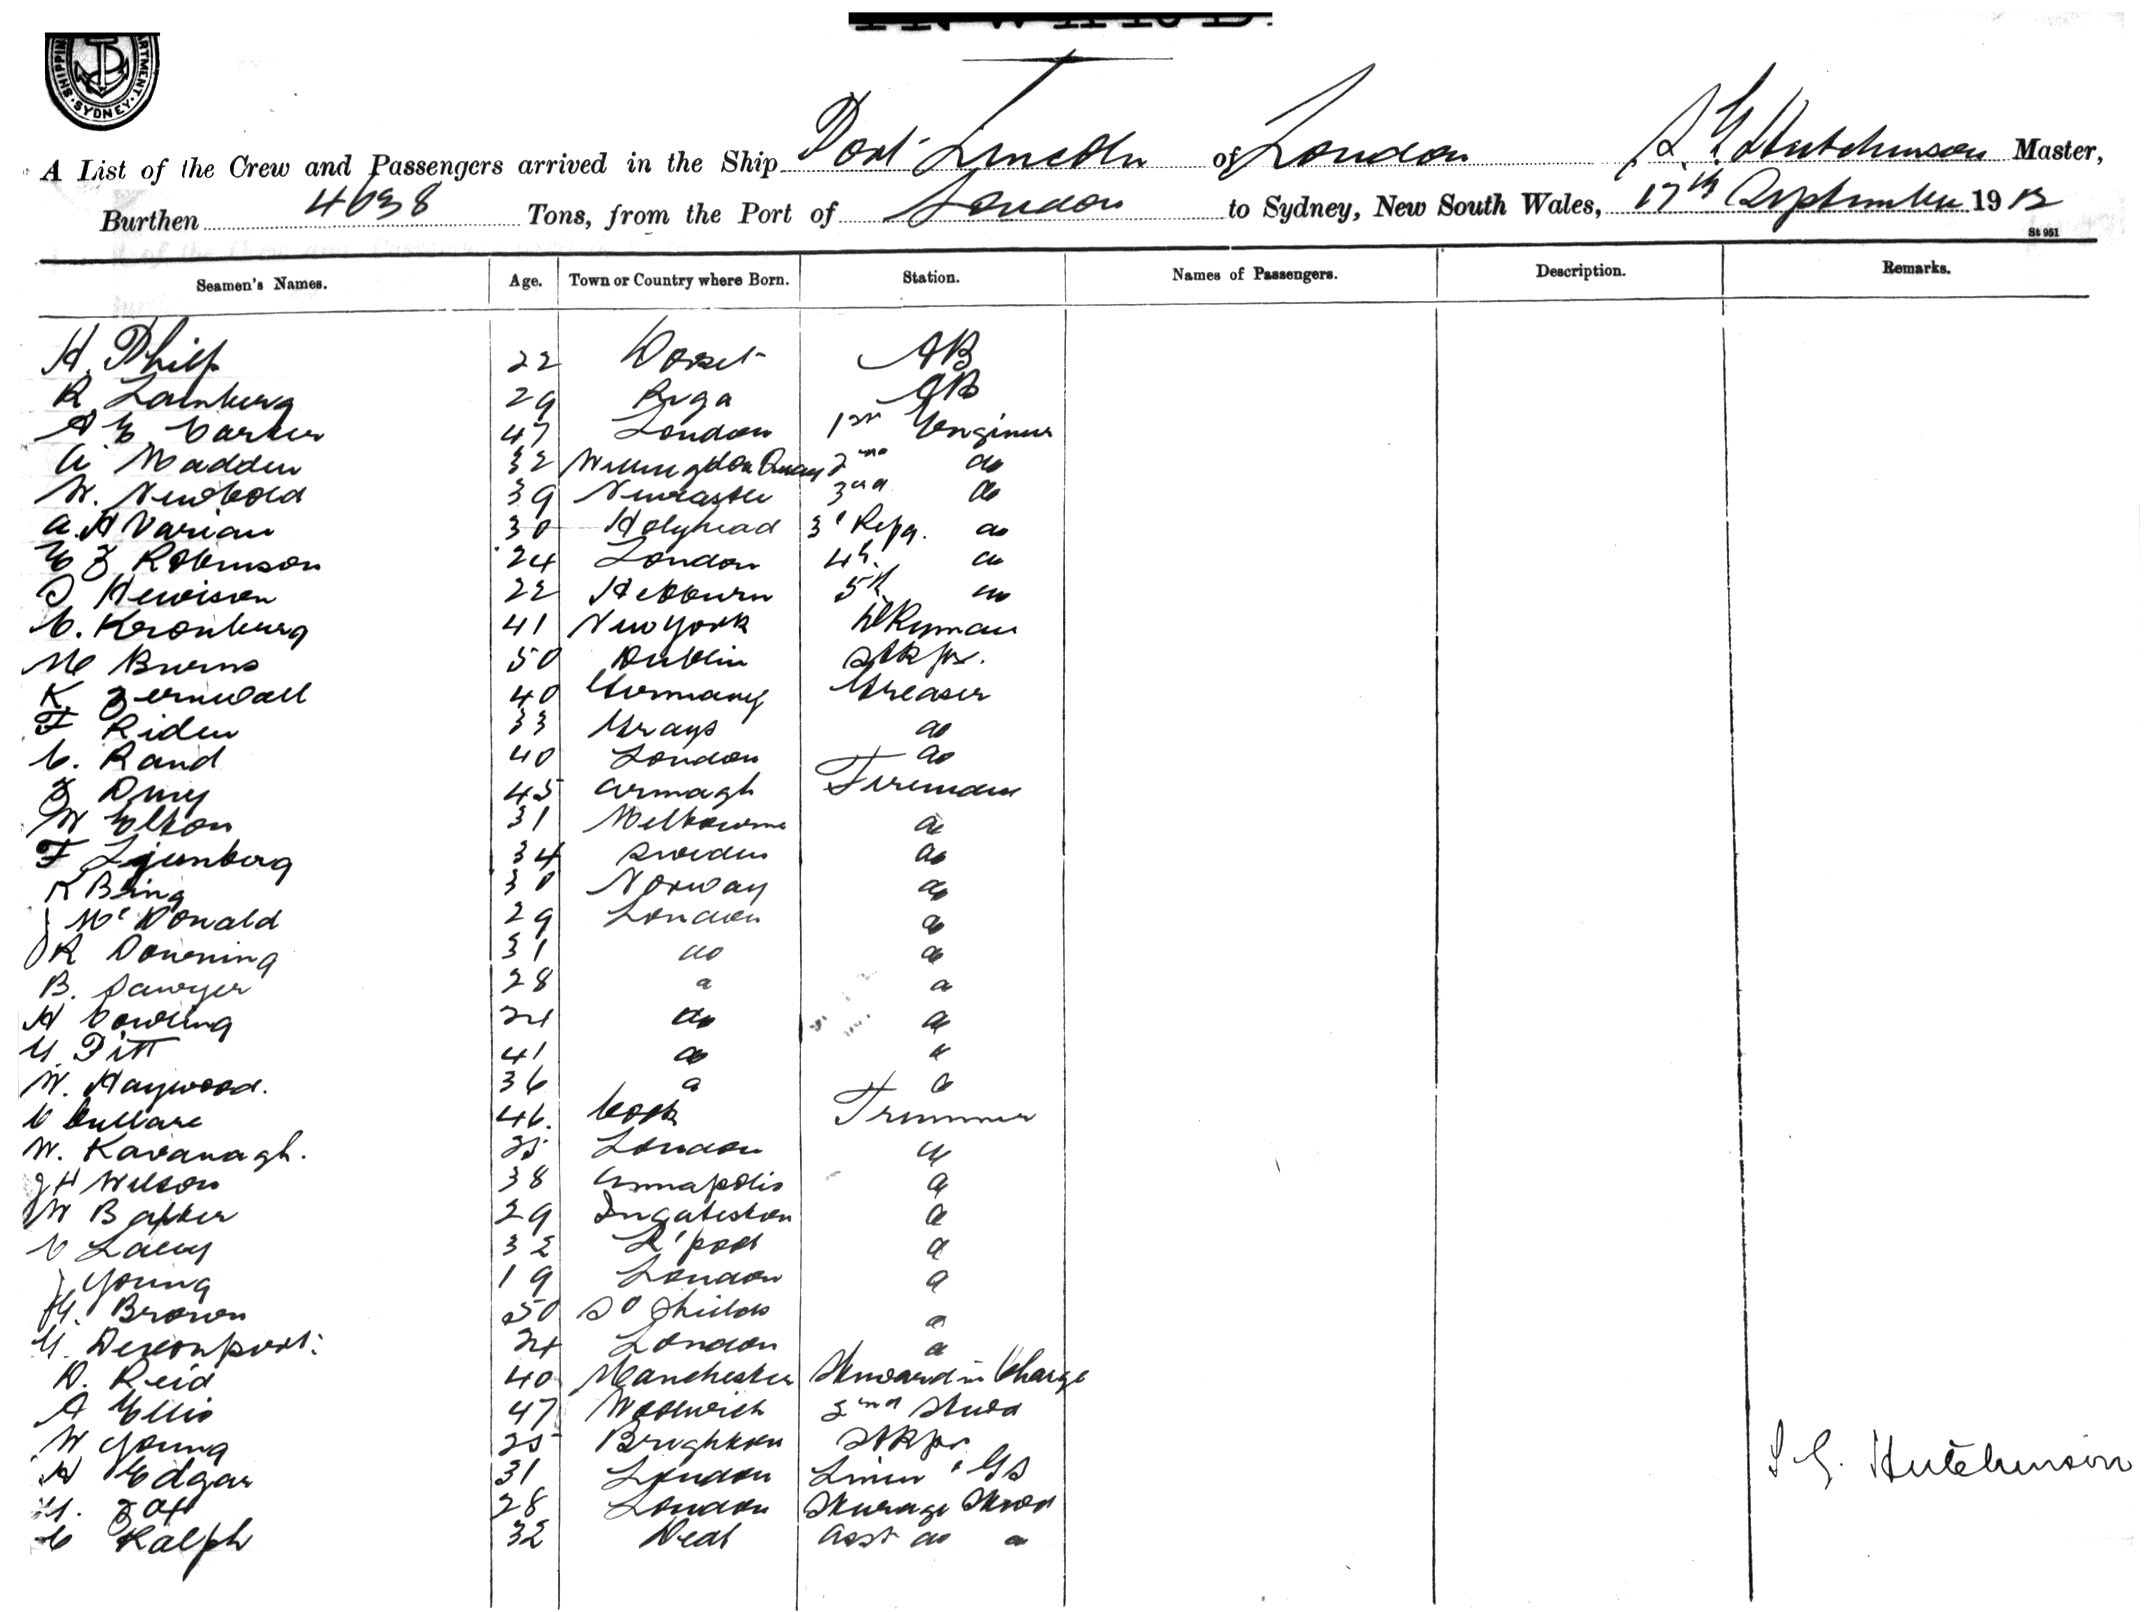 SHIPPING DEPARTMENT. SYDNEY.
A List of the Crew and Passengers arrived in the Ship Port Lincoln of London S. G. Hutchinson Master,
Burthen 4638 Tons, from the Port of London to Sydney, New South Wales, 17th September 1912
St 951
Seamen's Names. Age. Town or Country where Born. Station. Names of Passengers. Description. Remarks.
H. Philp 22 Dorset AB
R Lainburg 29 Riga AB
A E Carter 47 London 1st Engineer
A Madden 32 Willington Quay 2nd do
W. Newbold 39 Newcastle 3rd do
A. H Varian 30 Holyhead 3' Refg. do
E F Robinson 24 London 4th. do
J Hewison 22 Hebburn 5th do
C. Kronburg 41 New York Dkyman
M Burns 50 Dublin Stkpr.
K. Zernwall 40 Germany Greaser
F Riden 33 Grays do
C. Rand 40 London do
J Dury 45 Armagh Fireman
W Elton 31 Melbourne do
F Ljunberg 34 Sweden do
K Bring 30 Norway do
J McDonald 29 London do
R Downing 31 do do
B. Sawyer 28 do do
H Cowling 24 do do
G. Pitt 41 do do
W. Haywood. 36 do do
C Cullare 46. Cork Trimmer
W. Kavanagh. 25 London do
J H Wilson 38 Annapolis do
W Barker 29 Ingateston do
C Lacey 32 L'pool do
J Young 19 London do
H. Brown 50 So Shields do
G. Devonport. 24 London do
D. Reid 40 Manchester Steward in Charge
A Ellis 47 Woolwich 2nd Stewd
W Young 25 Brighton Stkpr
H Edgar 31 London Linen & GS
G. Fox 28 London Steerage Stewd
C Ralph 32 Deal Asst do do
S. G. Hutchinson